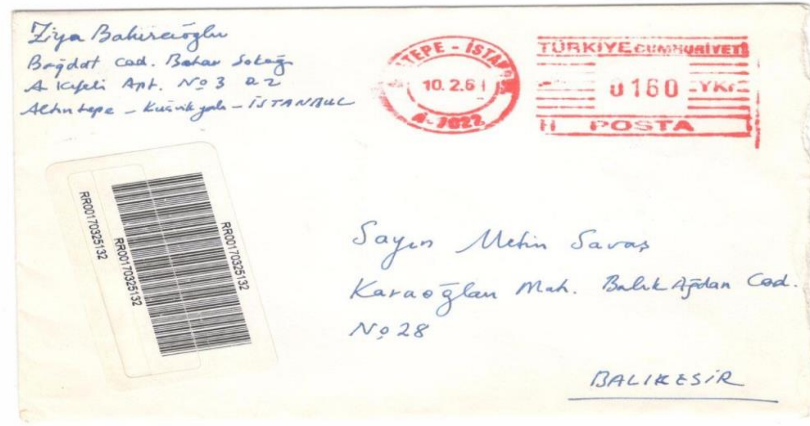 Ziya Bakırcıoğlu
Bağdat Cad. Bahar Sokağı
Apt. Nº 3 D 2
Altıntepe - Küçükyalı - İSTANBUL
TEPE - İSTAN
10. 2. 6
A-7022
TÜRKİYE CUMHURİYETİ
0160 YKr
POSTA
RR00170325132
RR00170325132
RR00170325132
Sayın Metin Savaş
Karaoğlan Mah. Balık Ağdan Cad.
Nº 28
BALIKESİR